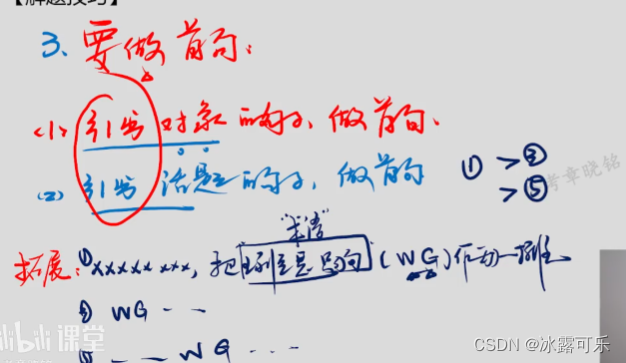 【解题技巧】
3、要做首句:
(1) 引出对象的句子，做首句、
(2) 引出话题的句子，做首句
① > ②
> ⑤
考章晓铭
拓展: ①xxxxx xxx, 把 (WG)作为一
② WG - -
WG - - -
bilibili 课堂
CSDN @冰露可乐